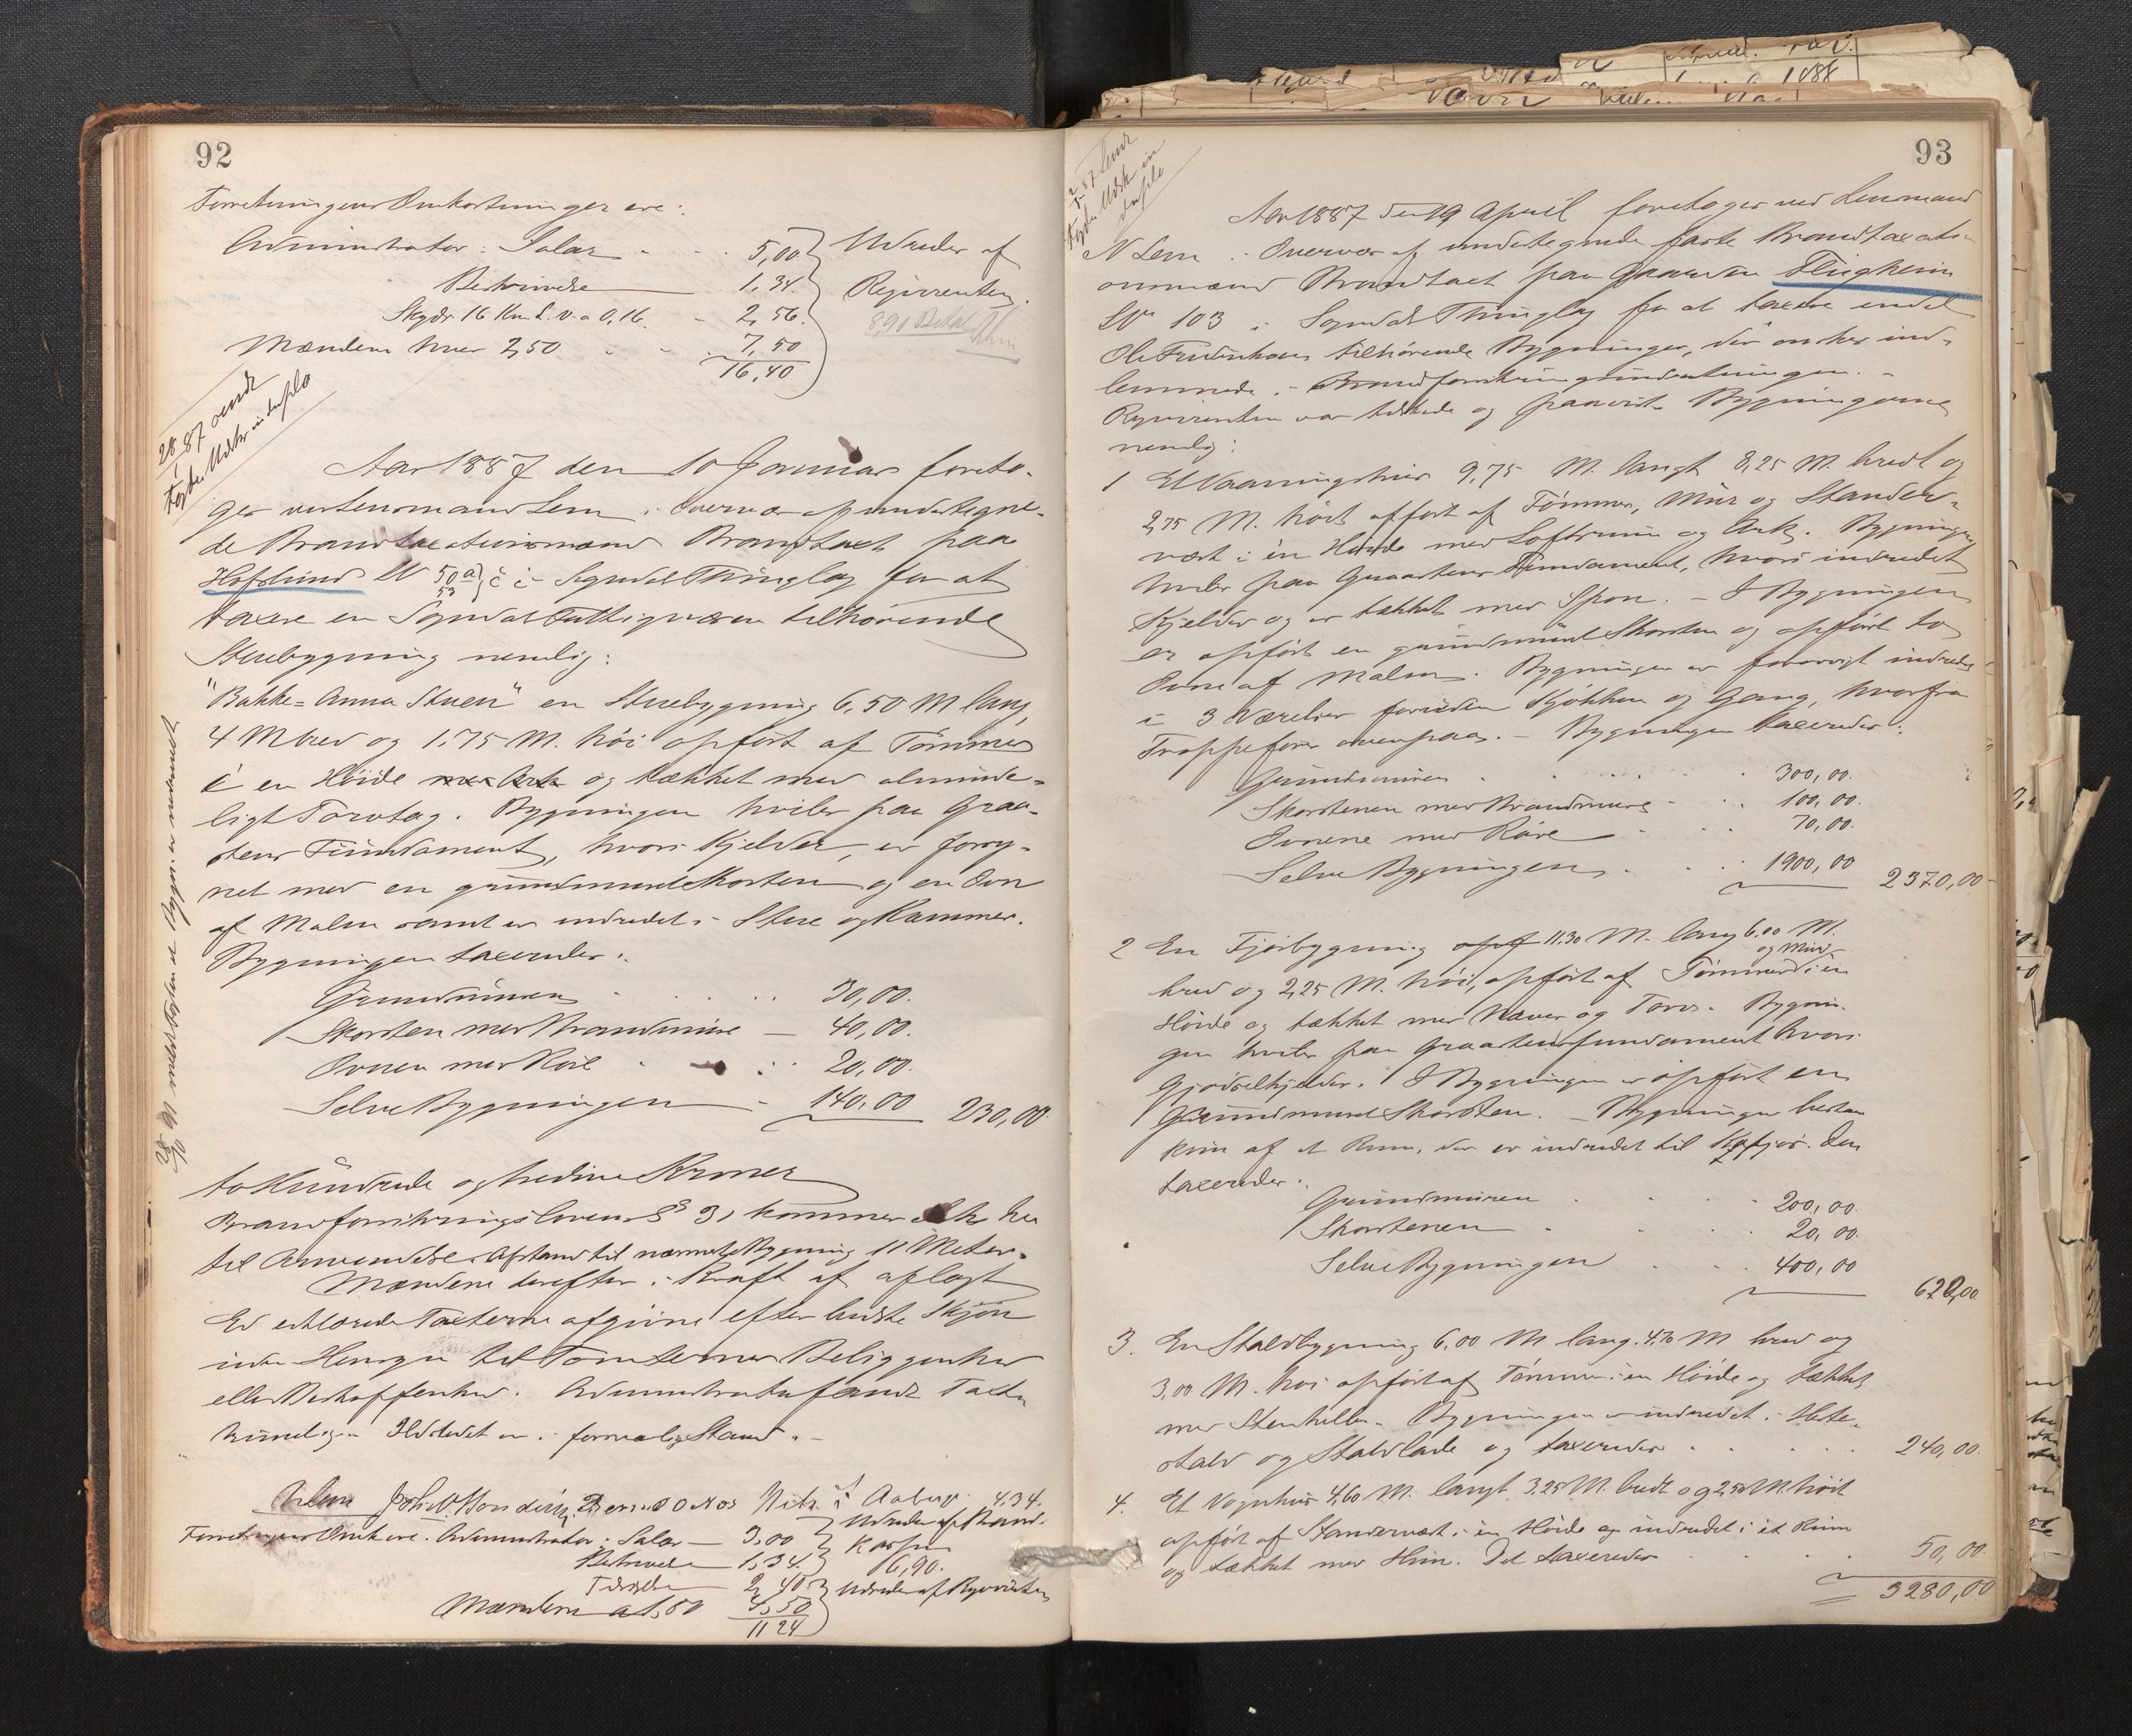 92
Forretningens Omkostninger ere:
Administrator: Salær - - 5,00 } Udredes af
Beskrivelse 1,34. Reqvirenten.
Skyds 16 Km. L. V. a 0,16. - 2,56. 8,90 Betalt
Mændene hver 2,50 - - 7,50
16,40
28/1 87 sendt
Fogden Udskr. in duplo
Aar 1887 den 10 Januar foreto-
ges ved Lensmand Lem i Overvær af undertegne-
de Brandtaxationsmænd Brandtaxt paa
Hofslund LN 50a 53 c i Sogndal Thinglag for at
taxere en Sogndal Fattigvæsen tilhørende
Stuebygning nemlig:
"Bakke-Anna Stuen" en Stuebygning 6,50 M lang,
4 M bred og 1,75 M. høi opført af Tømmer
i en Høide med Ark og tækket med alminde-
ligt Torvtag. Bygningen hviler paa Graa-
stens Fundament, hvori Kjelder, er forsy-
net med en grundmuret Skorsten og en Ovn
af Malm samt er indredet i Stue og Kammer.
Bygningen taxeredes:
Grundmuren - - 30,00.
Skorsten med Brandmure — 40,00.
Ovnen med Rör - - 20,00.
Selve Bygningen - 140,00 230,00.
to Hundrede og tredive Kroner
Brandforsikringslovens § 31 kommer ikke her
til Anvendelse. Afstand til nærmeste Bygning 11 Meter.
Mændene derefter i Kraft af aflagt
Ed erklærede Taxterne afgivne efter bedste Skjøn
uden Hensyn til Tomternes Beliggenhed
eller Beskaffenhed. Administrator fandt Taxten
rimelig. Ildstedet er i forsvarlig Stand. -
Forretningens Omk. ere: Administrator: Salær — 3,00 } Udredes af Brand-
Beskrivelse 1,34 } Kassen
6,90.
2,40 } Udredes af Reqvirenten
Mændene a 1,50 4,50
11 24
93
Fogden Udskr. in
duplo
Aar 1887 den 19 April foretoges ved Lensmand
N Lem i Overvær af undertegnede faste Brandtaxations-
mænd Brandtaxt paa Gaarden Flugheim
LN 103 i Sogndals Thinglag for at taxere endel
Ole Fredrikson tilhørende Bygninger, der ønskes ind-
lemmede i Brandforsikringsindretningen. -
Reqvirenten var tilstede og paaviste Bygningerne
nemlig:
1 Et Vaaningshus 9,75 M. langt 8,25 M. bredt og
2,75 M. høit opført af Tømmer, Mur og Stander-
værk i en Høide med Loftsrum og Ark. Bygningen
hviler paa Graastens Fundament, hvori indredet
Kjelder og er tækket med Spon. - I Bygningen
er opført en grundmuret Skorsten og opført to
Ovne af Malm. Bygningen er forøvrigt indredet
i 3 Værelser foruden Kjøkken og Gang, hvorfra
Trappe fører ovenpaa. - Bygningen taxeredes:
Grundmuren - - 300,00.
Skorstenen med Brandmure - 100,00.
Ovnene med Röre - 70,00.
Selve Bygningen - 1900,00 2370,00
2 En Fjøsbygning opf 11,30 M. lang 6,00 M.
bred og 2,25 M. høi, opført af Tømmer og Mur i en
Høide og tækket med Næver og Torv. Bygnin-
gen hviler paa Graastensfundament hvori
Gjødselkjelder. I Bygningen er opført en
Grundmuret Skorsten. - Bygningen bestaar
kun af et Rum, der er indredet til Kofjøs. Den
taxeredes:
Grundmuren - - 200,00.
Skorstenen - 20,00.
Selve Bygningen - 400,00
620,00
3. En Staldbygning 6,00 M lang. 4,70 M bred og
3,00 M. høi opført af Tømmer i en Høide og tækket
med Stenheller. Bygningen er indredet i Heste-
stald og Staldlade og taxeredes - - 240,00.
4. Et Vognhus 4,60 M. langt 3,25 M. bredt og 2,50 M. høit
opført af Standerværk i en Høide og indredet i et Rum
og tækket med Hun. Det taxeredes - 50,00.
3280,00